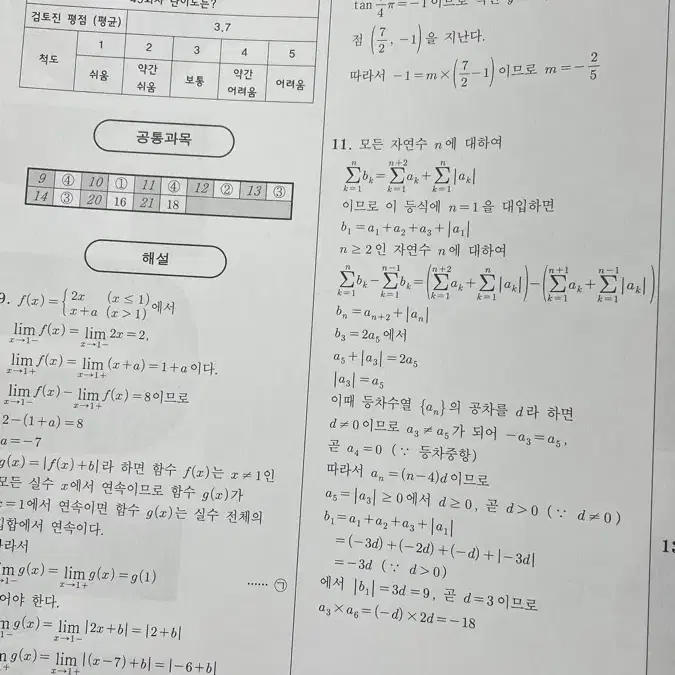 45회차 난이도는?
검토진 평점 (평균) 3.7
척도 1 2 3 4 5
쉬움 약간 쉬움 보통 약간 어려움 어려움
공통과목
9 ④ 10 ① 11 ④ 12 ② 13 ③
14 ③ 20 16 21 18
해설
9. f(x)={2x (x≤1) x+a (x>1) 에서
lim_{x→1-} f(x)=lim_{x→1-} 2x=2,
lim_{x→1+} f(x)=lim_{x→1+} (x+a)=1+a이다.
lim_{x→1-} f(x)-lim_{x→1+} f(x)=8이므로
2-(1+a)=8
a=-7
g(x)=|f(x)+b|라 하면 함수 f(x)는 x≠1인
모든 실수 x에서 연속이므로 함수 g(x)가
x=1에서 연속이면 함수 g(x)는 실수 전체의
집합에서 연속이다.
따라서
lim_{x→1-} g(x)=lim_{x→1+} g(x)=g(1) …… ㉠
어야 한다.
lim_{x→1-} g(x)=lim_{x→1-} |2x+b|=|2+b|
lim_{x→1+} g(x)=lim_{x→1+} |(x-7)+b|=|-6+b|
tan 7/4 π=-1이므로
점 (7/2, -1)을 지난다.
따라서 -1=m×(7/2-1)이므로 m=-2/5
11. 모든 자연수 n에 대하여
∑_{k=1}^{n} b_k=∑_{k=1}^{n+2} a_k+∑_{k=1}^{n} |a_k|
이므로 이 등식에 n=1을 대입하면
b₁=a₁+a₂+a₃+|a₁|
n≥2인 자연수 n에 대하여
∑_{k=1}^{n} b_k-∑_{k=1}^{n-1} b_k=(∑_{k=1}^{n+2} a_k+∑_{k=1}^{n} |a_k|)-(∑_{k=1}^{n+1} a_k+∑_{k=1}^{n-1} |a_k|)
b_n=a_{n+2}+|a_n|
b₃=2a₅에서
a₅+|a₃|=2a₅
|a₃|=a₅
이때 등차수열 {a_n}의 공차를 d라 하면
d≠0이므로 a₃≠a₅가 되어 -a₃=a₅,
곧 a₄=0 (∵ 등차중항)
따라서 a_n=(n-4)d이므로
a₅=|a₃|≥0에서 d≥0, 곧 d>0 (∵ d≠0)
b₁=a₁+a₂+a₃+|a₁|
=(-3d)+(-2d)+(-d)+|-3d|
=-3d (∵ d>0)
에서 |b₁|=3d=9, 곧 d=3이므로
a₃×a₆=(-d)×2d=-18
13